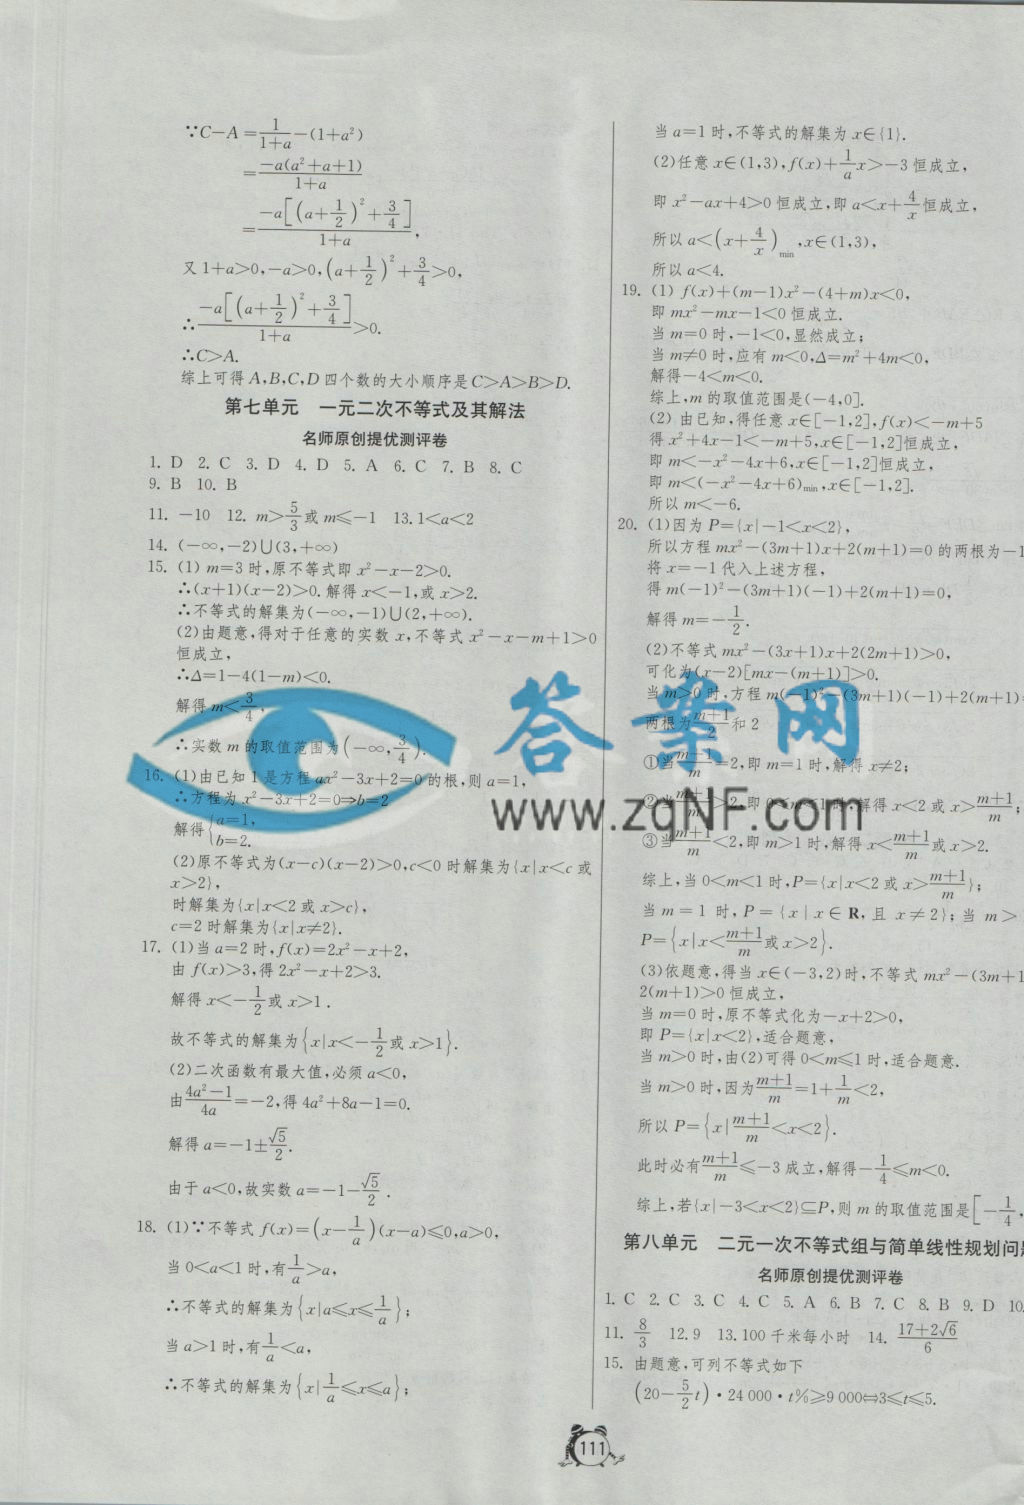 ∵C－A＝1/(1+a)－(1+a²)
＝－a(a²+a+1)/(1+a)
＝－a[(a+1/2)²+3/4]/(1+a),
又 1+a>0,－a>0,(a+1/2)²+3/4>0,
∴－a[(a+1/2)²+3/4]/(1+a)>0.
∴C>A.
综上可得 A,B,C,D 四个数的大小顺序是 C>A>B>D.
第七单元 一元二次不等式及其解法
名师原创提优测评卷
1. D 2. C 3. D 4. D 5. A 6. C 7. B 8. C
9. B 10. B
11. －10 12. m>5/3或 m≤－1 13.1<a<2
14. (－∞,－2)∪(3,+∞)
15. (1) m=3 时,原不等式即 x²－x－2>0.
∴(x+1)(x－2)>0.解得 x<－1,或 x>2.
∴不等式的解集为(－∞,－1)∪(2,+∞).
(2)由题意,得对于任意的实数 x,不等式 x²－x－m+1>0
恒成立,
∴Δ=1－4(1－m)<0.
解得 m<3/4,
∴实数 m 的取值范围为(－∞,3/4).
16. (1)由已知 1 是方程 ax²－3x+2=0 的根,则 a=1,
∴方程为 x²－3x+2=0⇒b=2
解得{a=1, b=2.
(2)原不等式为(x－c)(x－2)>0,c<0 时解集为{x|x<c 或
x>2},
时解集为{x|x<2 或 x>c},
c=2 时解集为{x|x≠2}.
17. (1)当 a=2 时,f(x)=2x²－x+2,
由 f(x)>3,得 2x²－x+2>3.
解得 x<－1/2或 x>1.
故不等式的解集为{x|x<－1/2或 x>1}.
(2)二次函数有最大值,必须 a<0,
由(4a²－1)/4a=－2,得 4a²+8a－1=0.
解得 a=－1±√5/2.
由于 a<0,故实数 a=－1－√5/2.
18. (1)∵不等式 f(x)=(x－1/a)(x－a)≤0,a>0,
当 0<a<1 时,有1/a>a,
∴不等式的解集为{x|a≤x≤1/a};
当 a>1 时,有1/a<a,
∴不等式的解集为{x|1/a≤x≤a};
当 a=1 时,不等式的解集为 x∈{1}.
(2)任意 x∈(1,3),f(x)+1/a x>－3 恒成立,
即 x²－ax+4>0 恒成立,即 a<x+4/x恒成立,
所以 a<(x+4/x)min,x∈(1,3),
所以 a<4.
19. (1) f(x)+(m－1)x²－(4+m)x<0,
即 mx²－mx－1<0 恒成立.
当 m=0 时,－1<0,显然成立;
当 m≠0 时,应有 m<0,Δ=m²+4m<0,
解得－4<m<0.
综上,m 的取值范围是(－4,0].
(2) 由已知,得任意 x∈[－1,2],f(x)<－m+5
得 x²+4x－1<－m+5,x∈[－1,2]恒成立,
即 m<－x²－4x+6,x∈[－1,2]恒成立,
即 m<(－x²－4x+6)min,x∈[－1,2].
所以 m<－6.
20. (1)因为 P={x|－1<x<2},
所以方程 mx²－(3m+1)x+2(m+1)=0 的两根为－1
将 x=－1 代入上述方程,
得 m(－1)²－(3m+1)(－1)+2(m+1)=0,
解得 m=－1/2.
(2)不等式 mx²－(3x+1)x+2(2m+1)>0,
可化为(x－2)[mx－(m+1)]>0.
当 m>0 时,方程 m(－1)²－(3m+1)(－1)+2(m+1)=
两根为(m+1)/2和 2
①当(m+1)/m=2,即 m=1 时,解得 x≠2;
②当(m+1)/m>2,即 0<m<1 时,解得 x<2 或 x>(m+1)/m;
③当(m+1)/m<2,即 m>1 时,解得 x<(m+1)/m或 x>2.
综上,当 0<m<1 时,P={x|x<2 或 x>(m+1)/m};
当 m=1 时,P={x|x∈R,且 x≠2};当 m>
P={x|x<(m+1)/m或 x>2}.
(3)依题意,得当 x∈(－3,2)时,不等式 mx²－(3m+1
2(m+1)>0 恒成立,
当 m=0 时,原不等式化为－x+2>0,
即 P={x|x<2},适合题意,
当 m>0 时,由(2)可得 0<m≤1 时,适合题意.
当 m>0 时,因为(m+1)/m=1+1/m<2,
所以 P={x|(m+1)/m<x<2}.
此时必有(m+1)/m≤－3 成立,解得－1/4≤m<0.
综上,若{x|－3<x<2}⊆P,则 m 的取值范围是[－1/4,
第八单元 二元一次不等式组与简单线性规划问题
名师原创提优测评卷
1. C 2. C 3. C 4. C 5. A 6. B 7. C 8. B 9. D 10.
11. 8/3 12.9 13.100 千米每小时 14. (17+2√6)/6
15. 由题意,可列不等式如下
(20－5/2 t)·24 000·t%≥9 000⇔3≤t≤5.
111
答案网
www.zqNF.com